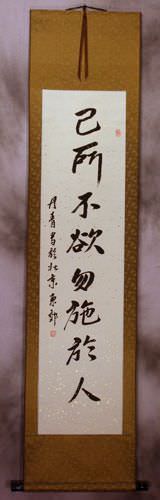 己所不欲勿施於人
丹青書於北京東郊